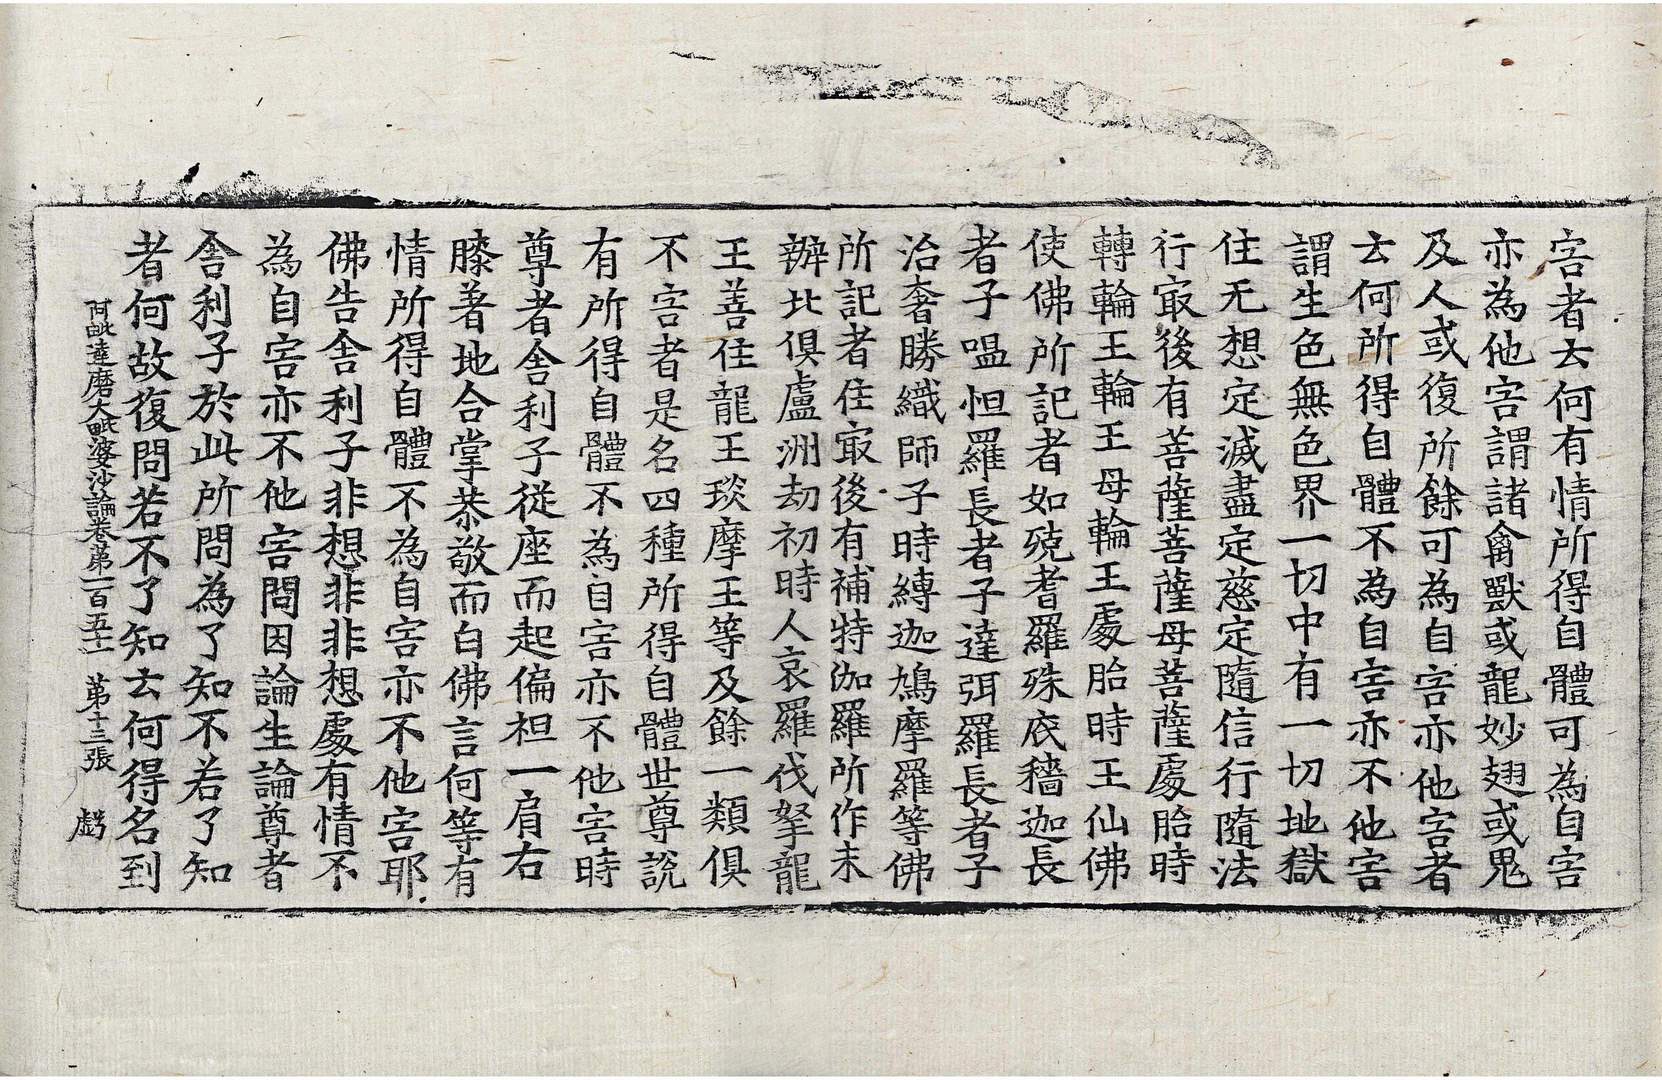 害者云何有情所得自體可為自害
亦為他害謂諸禽獸或龍妙翅或鬼
及人或復所餘可為自害亦他害者
云何所得自體不為自害亦不他害
謂生色無色界一切中有一切地獄
住无想定滅盡定慈定隨信行隨法
行㝡後有菩薩菩薩母菩薩處胎時
轉輪王輪王母輪王處胎時王仙佛
使佛所記者如殑耆羅殊底穡迦長
者子嗢怛羅長者子達弭羅長者子
治奢勝織師子時縛迦鳩摩羅等佛
所記者住㝡後有補特伽羅所作未
辦北俱盧洲劫初時人哀羅伐拏龍
王善住龍王琰摩王等及餘一類俱
不害者是名四種所得自體世尊說
有所得自體不為自害亦不他害時
尊者舍利子從座而起偏袒一肩右
膝著地合掌恭敬而白佛言何等有
情所得自體不為自害亦不他害耶
佛告舍利子非想非非想處有情不
為自害亦不他害問因論生論尊者
舍利子於此所問為了知不若了知
者何故復問若不了知云何得名到
阿毗達磨大毗婆沙論卷第一百五十一 第十三張 䖒